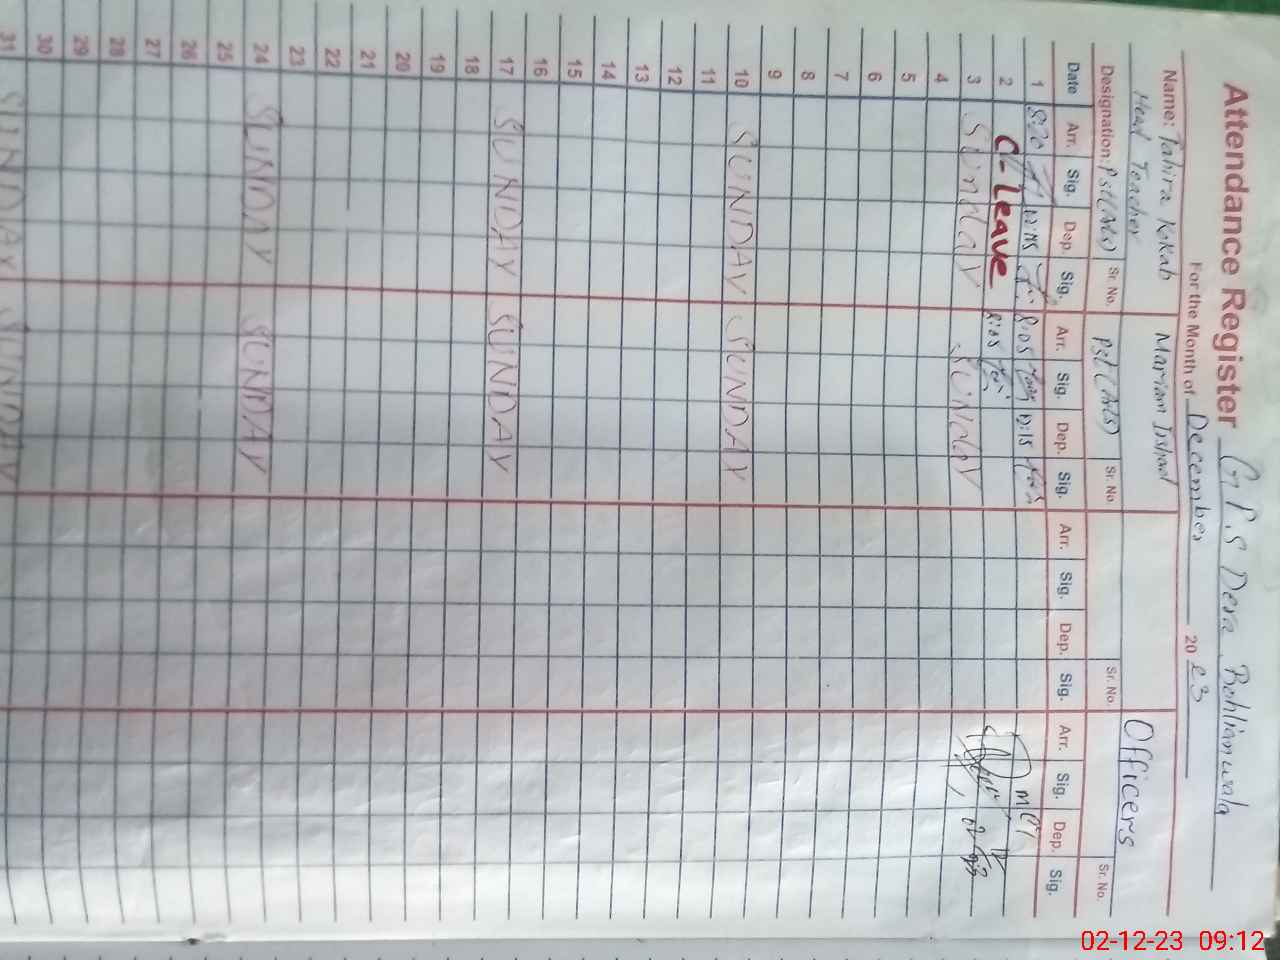 Attendance Register G.P.S Dera Bohlianwala
For the Month of December 2023
Name: Tahira Kokab Mariam Irshad
Head Teacher Officers
Designation: Pst(Arts) Sr. No. Pst(Arts) Sr. No. Sr. No. Sr. No.
Date Arr. Sig. Dep. Sig. Arr. Sig. Dep. Sig. Arr. Sig. Dep. Sig. Arr. Sig. Dep. Sig.
1 8:20 12:45 8:05 12:15
2 C-Leave 8:05
3 Sunday Sunday
4
5
6
7
8
9
10 SUNDAY SUNDAY
11
12
13
14
15
16
17 SUNDAY SUNDAY
18
19
20
21
22
23
24 SUNDAY SUNDAY
25
26
27
28
29
30
31 SUNDAY SUNDAY
02-12-23 09:12